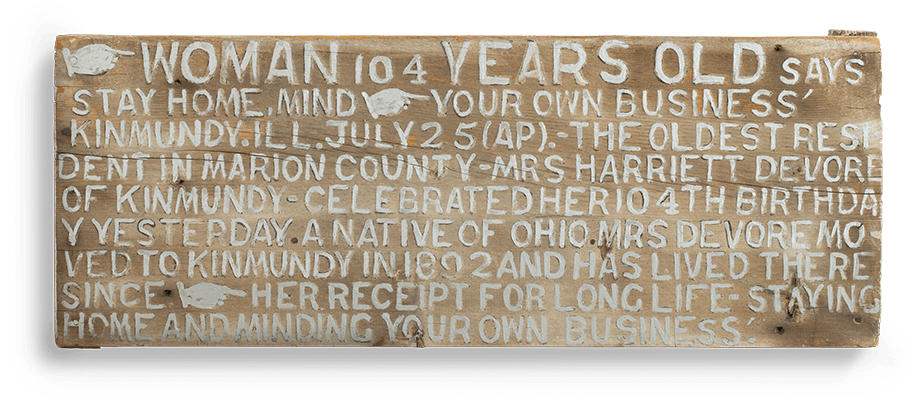 WOMAN 104 YEARS OLD SAYS
STAY HOME, MIND YOUR OWN BUSINESS'
KINMUNDY. ILL. JULY 25 (AP).-THE OLDEST RESI
DENT IN MARION COUNTY-MRS HARRIETT DEVORE
OF KINMUNDY-CELEBRATED HER 104TH BIRTHDA
Y YESTERDAY. A NATIVE OF OHIO. MRS DEVORE MO
VED TO KINMUNDY IN 1892 AND HAS LIVED THERE
SINCE- HER RECEIPT FOR LONG LIFE-STAYING
HOME AND MINDING YOUR OWN BUSINESS'.